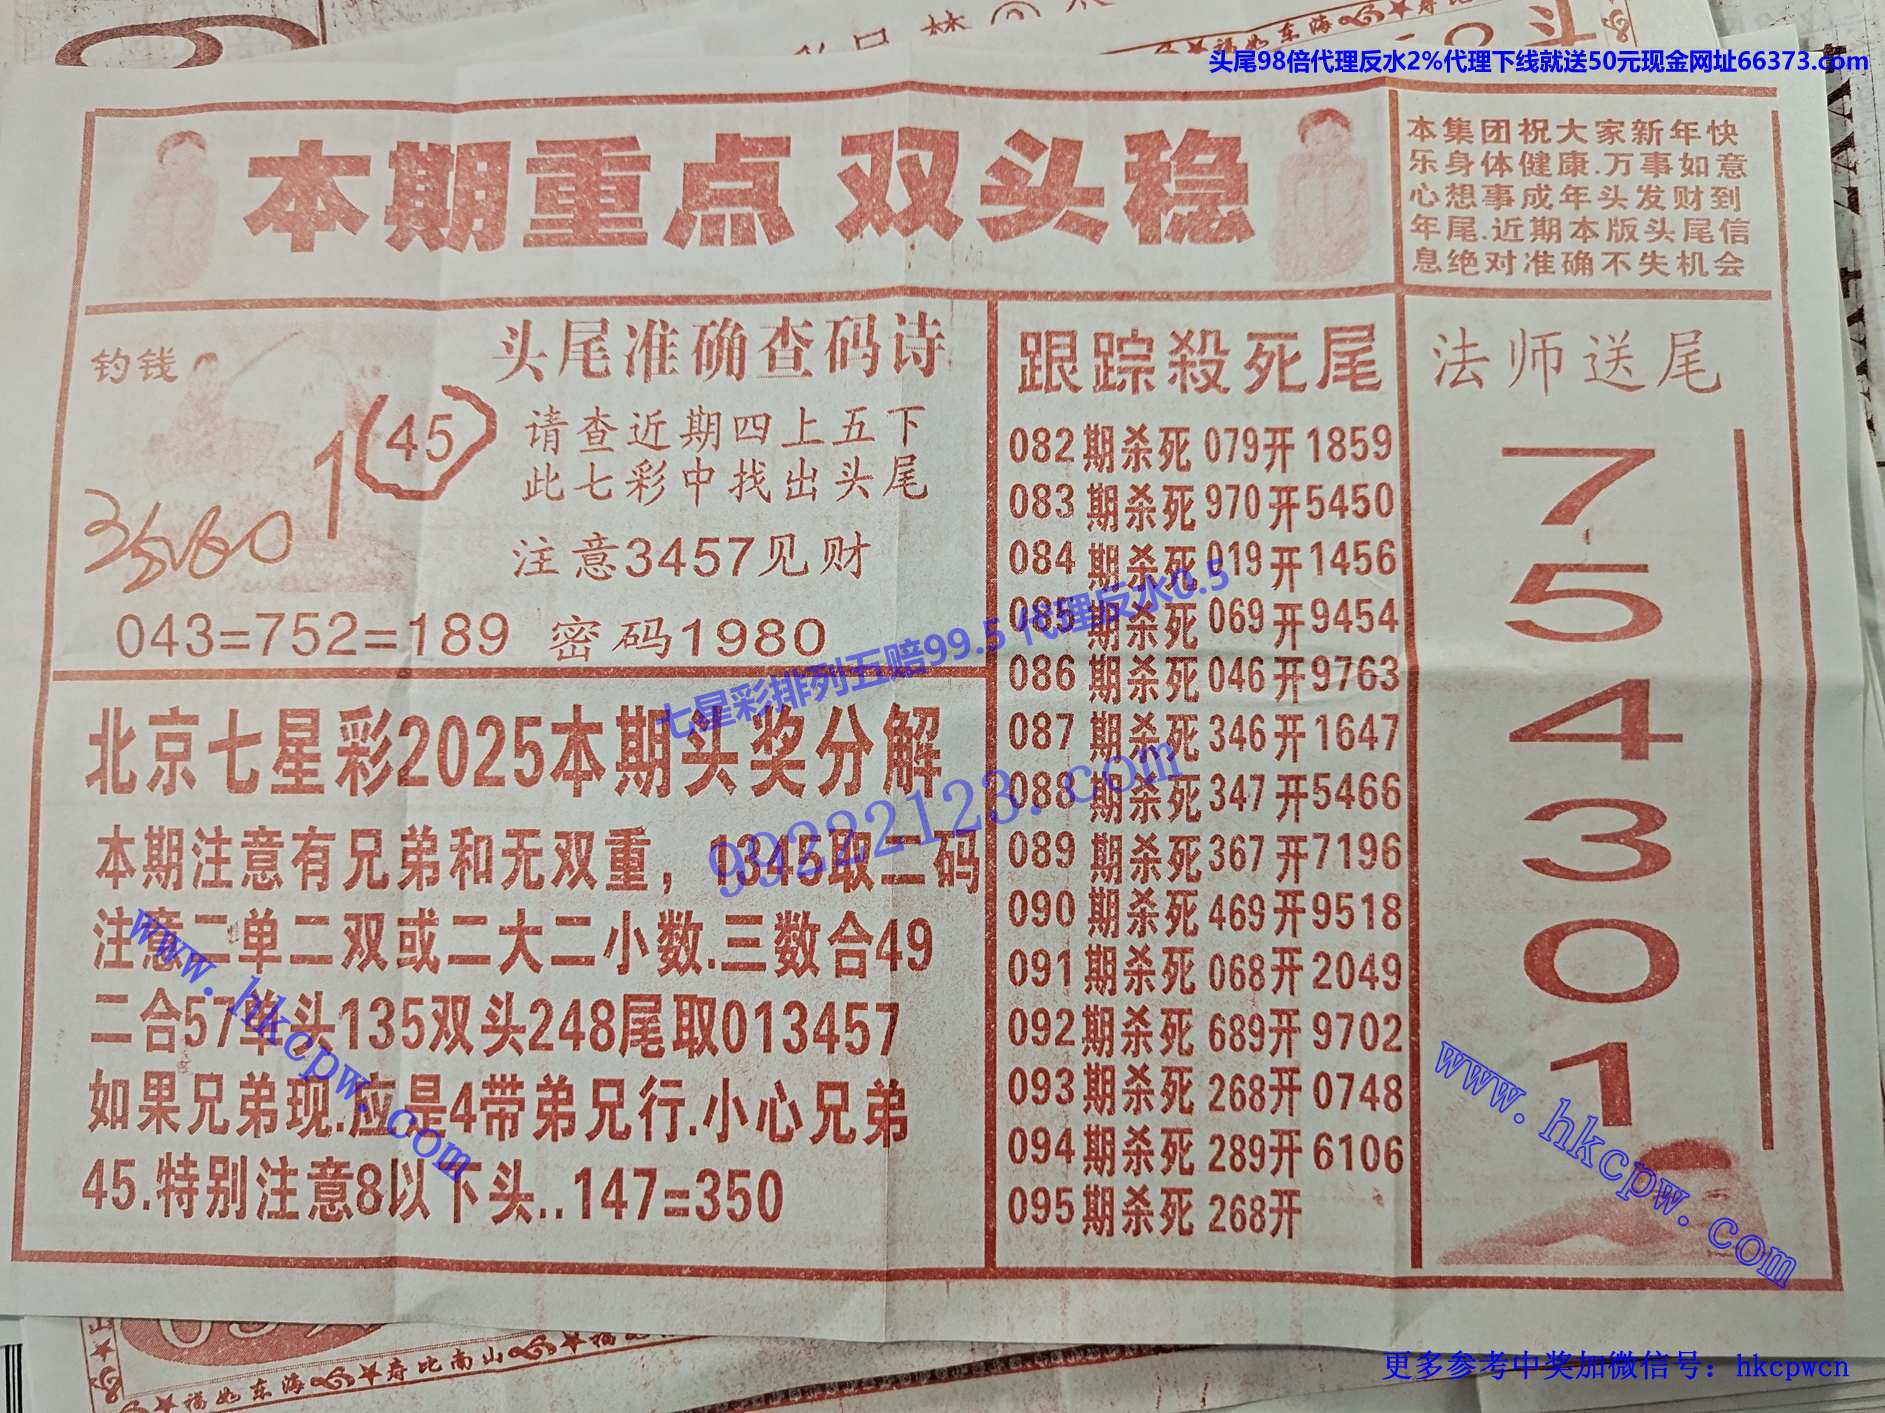 头尾98倍代理反水2%代理下线就送50元现金网址66373.com
本期重点 双头稳
本集团祝大家新年快
乐身体健康.万事如意
心想事成年头发财到
年尾.近期本版头尾信
息绝对准确不失机会
钓钱
1
(45)
头尾准确查码诗
请查近期四上五下
此七彩中找出头尾
注意3457见财
043=752=189 密码1980
跟踪殺死尾
082期杀死079开1859
083期杀死970开5450
084期杀死019开1456
085期杀死069开9454
086期杀死046开9763
087期杀死346开1647
088期杀死347开5466
089期杀死367开7196
090期杀死469开9518
091期杀死068开2049
092期杀死689开9702
093期杀死268开0748
094期杀死289开6106
095期杀死268开
法师送尾
7
5
4
3
0
1
北京七星彩2025本期头奖分解
本期注意有兄弟和无双重，1345取二码
注意二单二双或二大二小数.三数合49
二合57单头135双头248尾取013457
如果兄弟现.应是4带弟兄行.小心兄弟
45.特别注意8以下头..147=350
七星彩排列五赔99.5 代理反水0.5
99222123.com
www.hkcpw.com
www.hkcpw.com
福如东海
寿比南山
福如东海
更多参考中奖加微信号：hkcpwcn